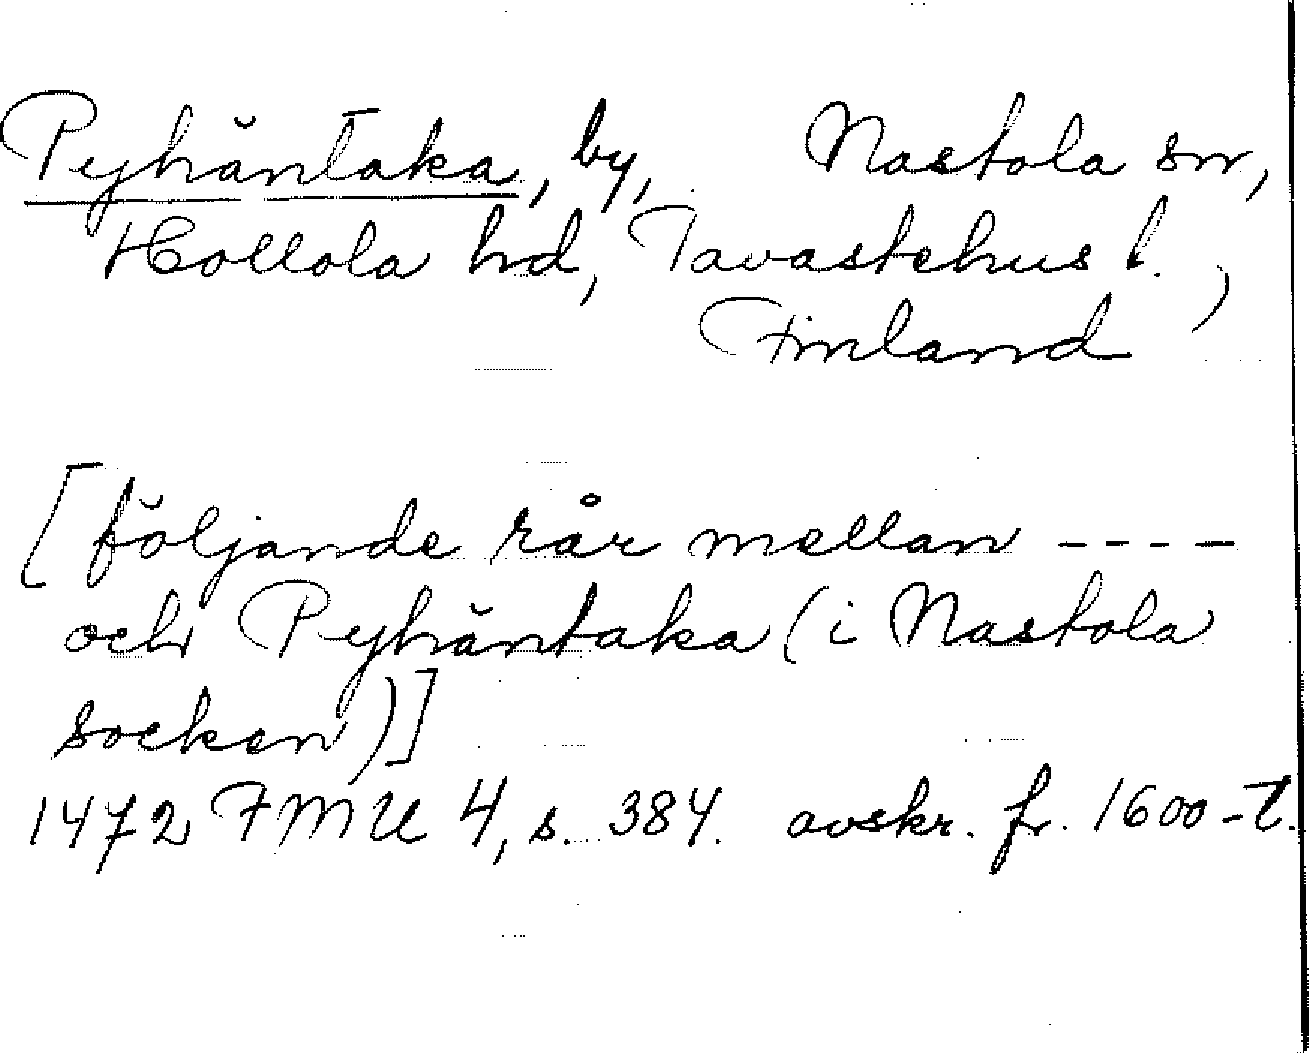 Pyhäntaka, by, Nastola sn,
Hollola hd, Tavastehus l.,
Finland
[följande rår mellan ----
och Pyhäntaka (i Nastola
socken)]
1472 FMU 4, s. 384. avskr. fr. 1600-t.